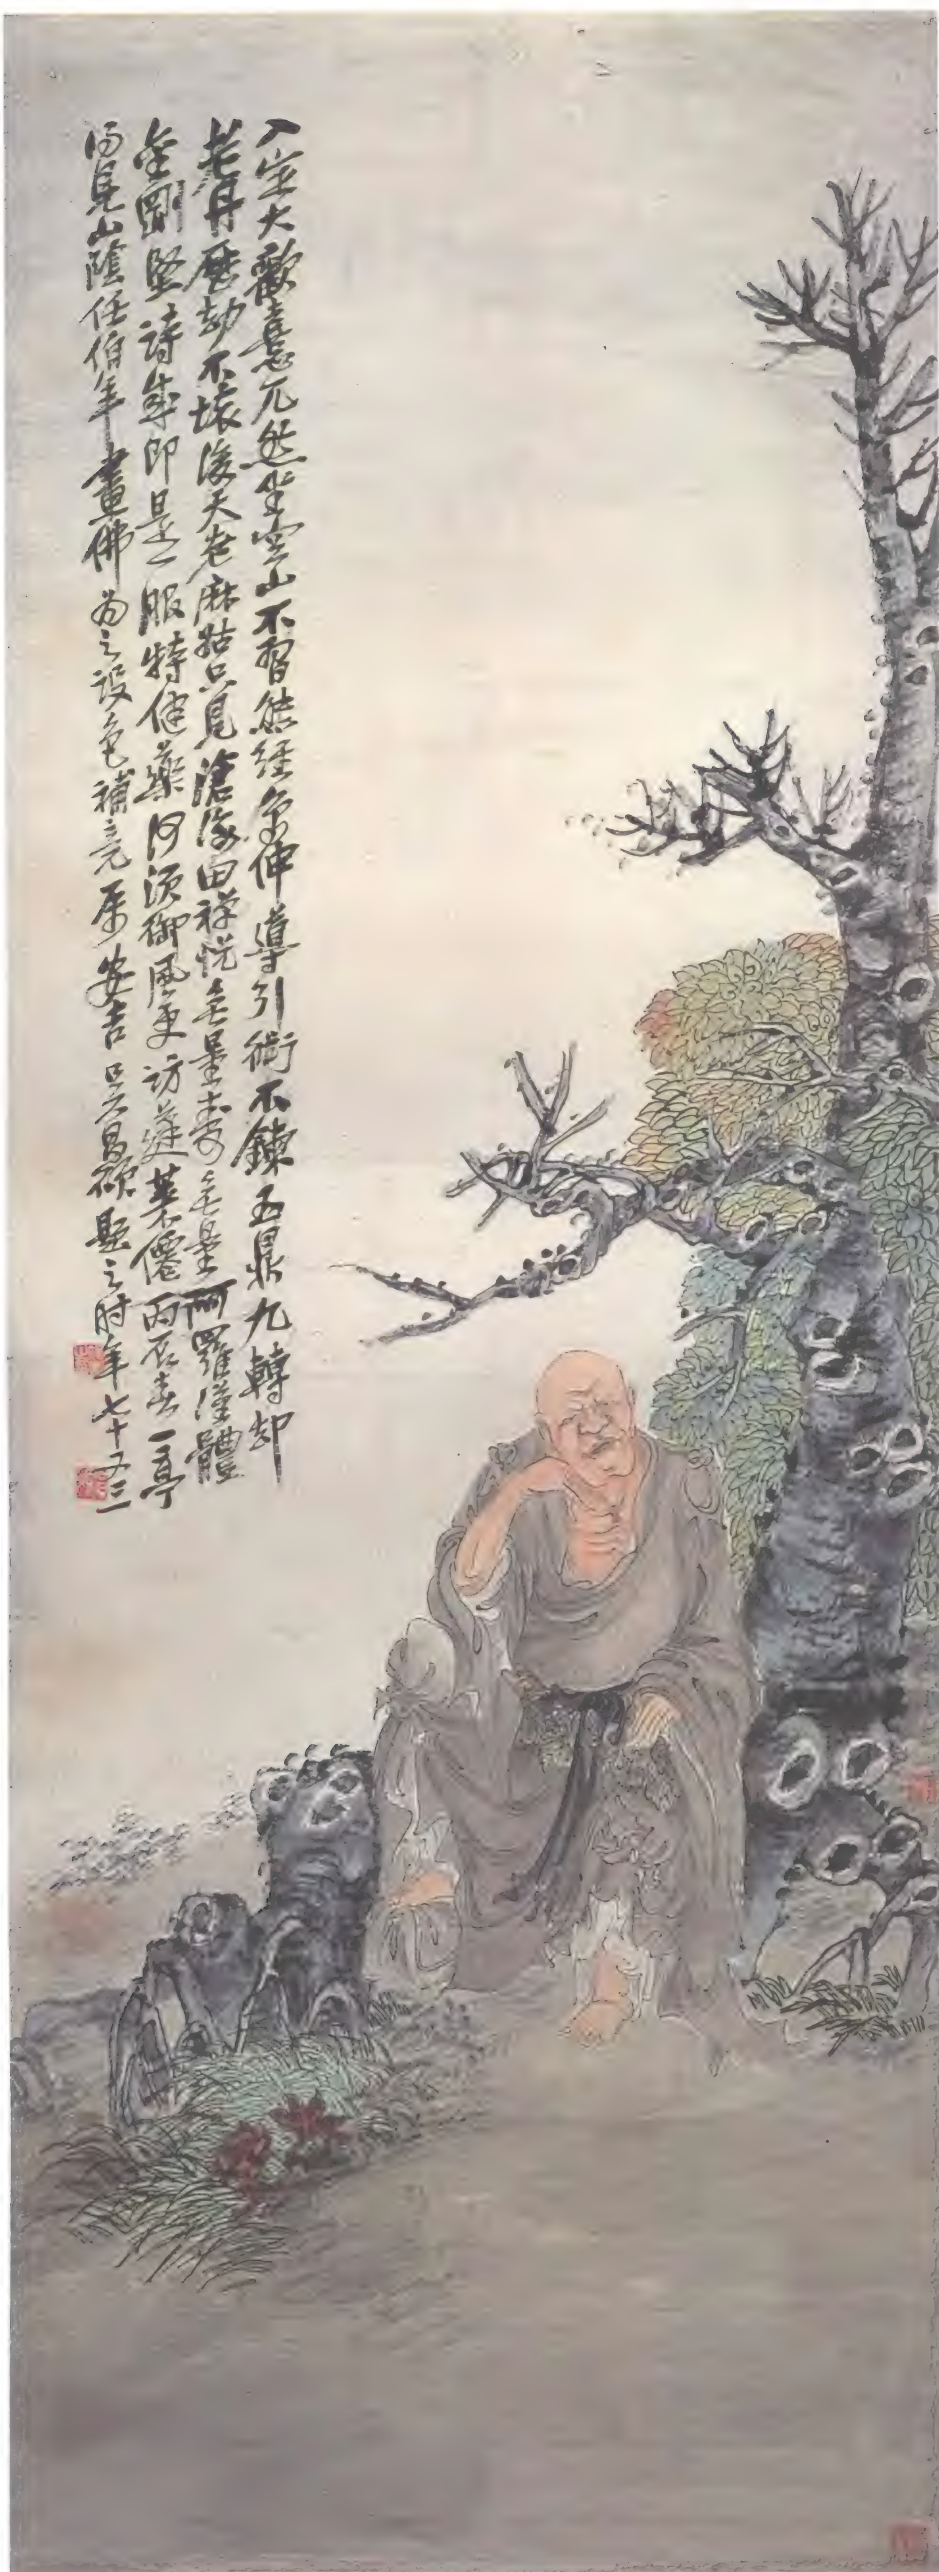 入定大歡憙兀然坐空山不習熊經鳥伸導引術不鍊五鼎九轉却
老丹歷劫不壞後天老麻姑只見滄海田禪悅無量壽無量阿羅漢體
金剛堅詩成即是一服特健藥何須御風更訪蓬萊僊丙辰春一亭
得見山陰任伯年畫佛為之設色補竟屬安吉吳昌碩題之時年七十又三